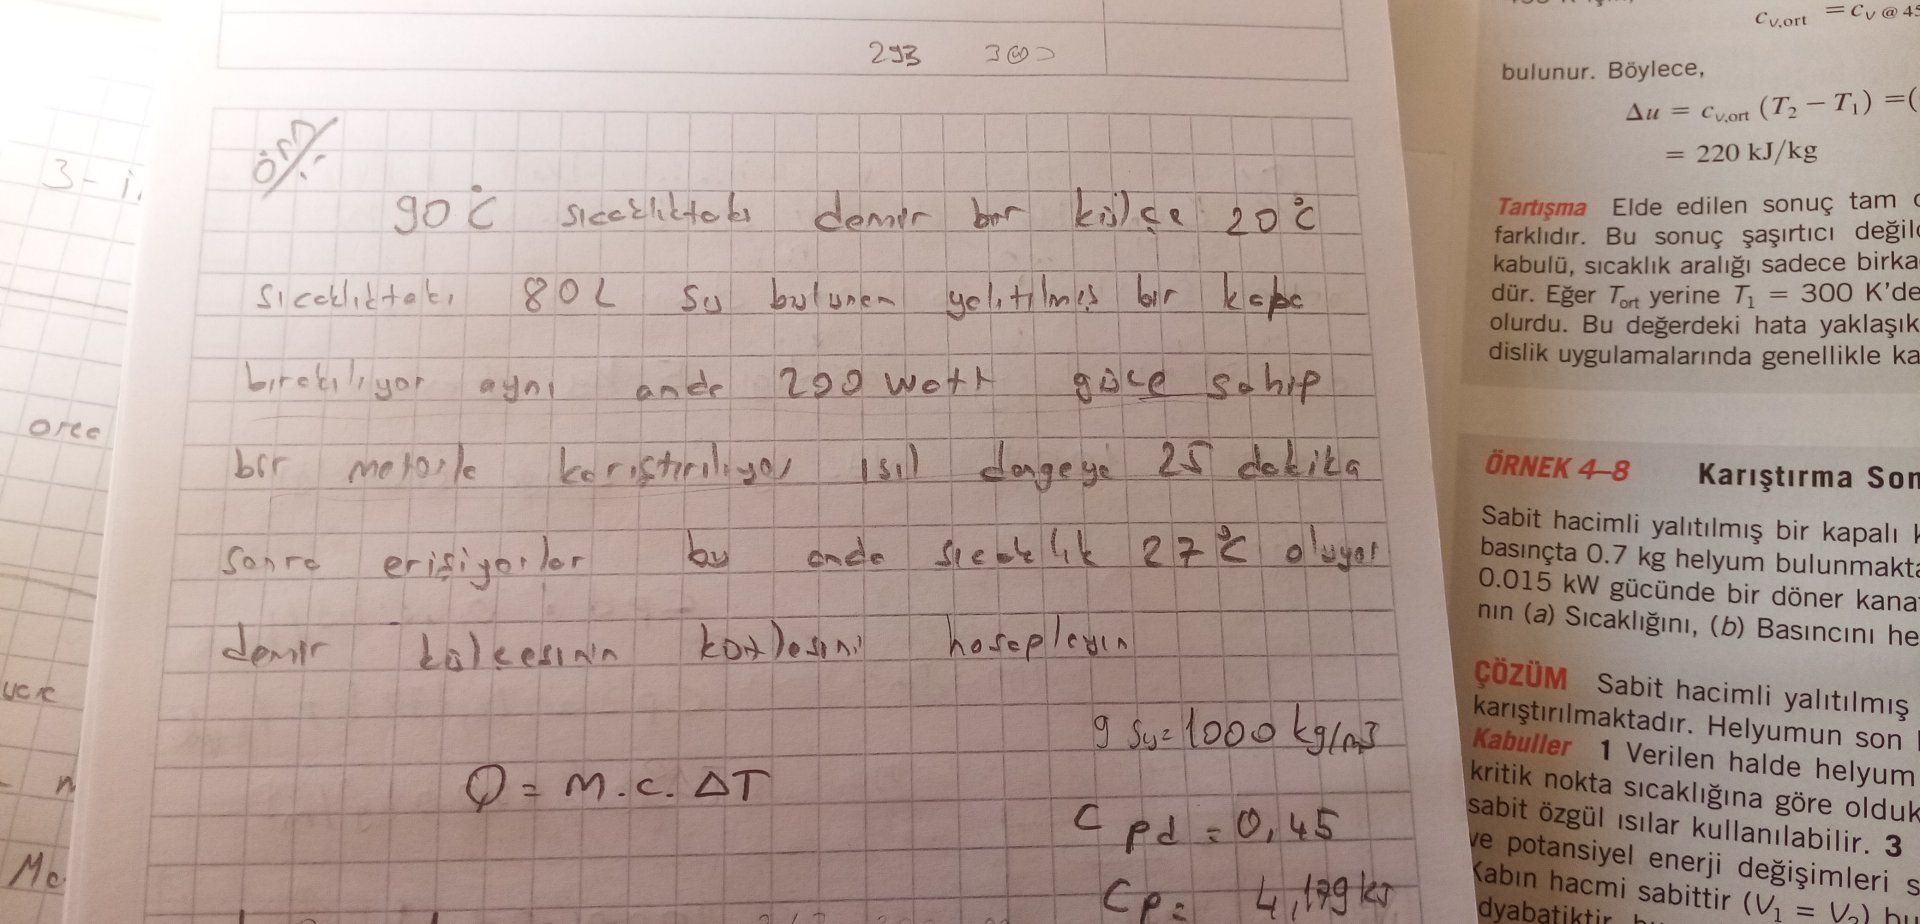 293 300
Örn/.
90°C sıcaklıktaki demir bir külçe 20°C
sıcaklıktaki 80L su bulunan yalıtılmış bir kaba
bırakılıyor aynı anda 200 watt güce sahip
bir motorla karıştırılıyor ısıl dengeye 25 dakika
sonra erişiyorlar bu anda sıcaklık 27°C oluyor
demir külçesinin kütlesini hesaplayın
g su = 1000 kg/m3
Q = m.c.ΔT
C pd = 0,45
Cp = 4,179 kJ
3-i
orta
Cv,ort = Cv @ 45
bulunur. Böylece,
Δu = cv,ort (T2 − T1) =(
= 220 kJ/kg
Tartışma Elde edilen sonuç tam
farklıdır. Bu sonuç şaşırtıcı değil
kabulü, sıcaklık aralığı sadece birka
dür. Eğer Tort yerine T1 = 300 K'de
olurdu. Bu değerdeki hata yaklaşık
dislik uygulamalarında genellikle ka
ÖRNEK 4–8 Karıştırma Son
Sabit hacimli yalıtılmış bir kapalı k
basınçta 0.7 kg helyum bulunmakta
0.015 kW gücünde bir döner kana
nın (a) Sıcaklığını, (b) Basıncını he
ÇÖZÜM Sabit hacimli yalıtılmış
karıştırılmaktadır. Helyumun son
Kabuller 1 Verilen halde helyum
kritik nokta sıcaklığına göre olduk
sabit özgül ısılar kullanılabilir. 3
ve potansiyel enerji değişimleri s
Kabın hacmi sabittir (V1 = V2) bu
dyabatiktir